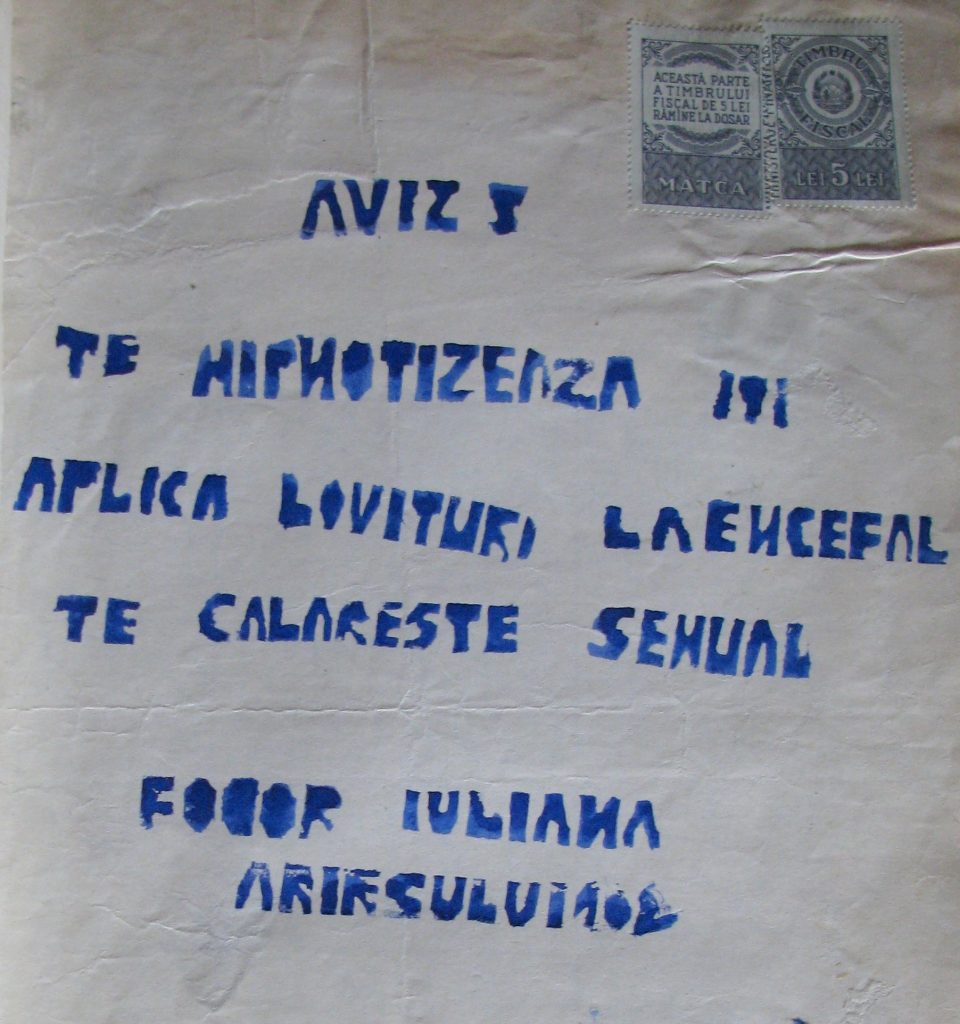 ACEASTĂ PARTE
A TIMBRULUI
FISCAL DE 5 LEI
RĂMÎNE LA DOSAR
MATCA
TIMBRU
FISCAL
LEI 5 LEI
AVIZ 5
TE HIPNOTIZEAZA ITI
APLICA LOVITURI LA ENCEFAL
TE CALARESTE SEXUAL
FODOR IULIANA
ARIESULUI 102